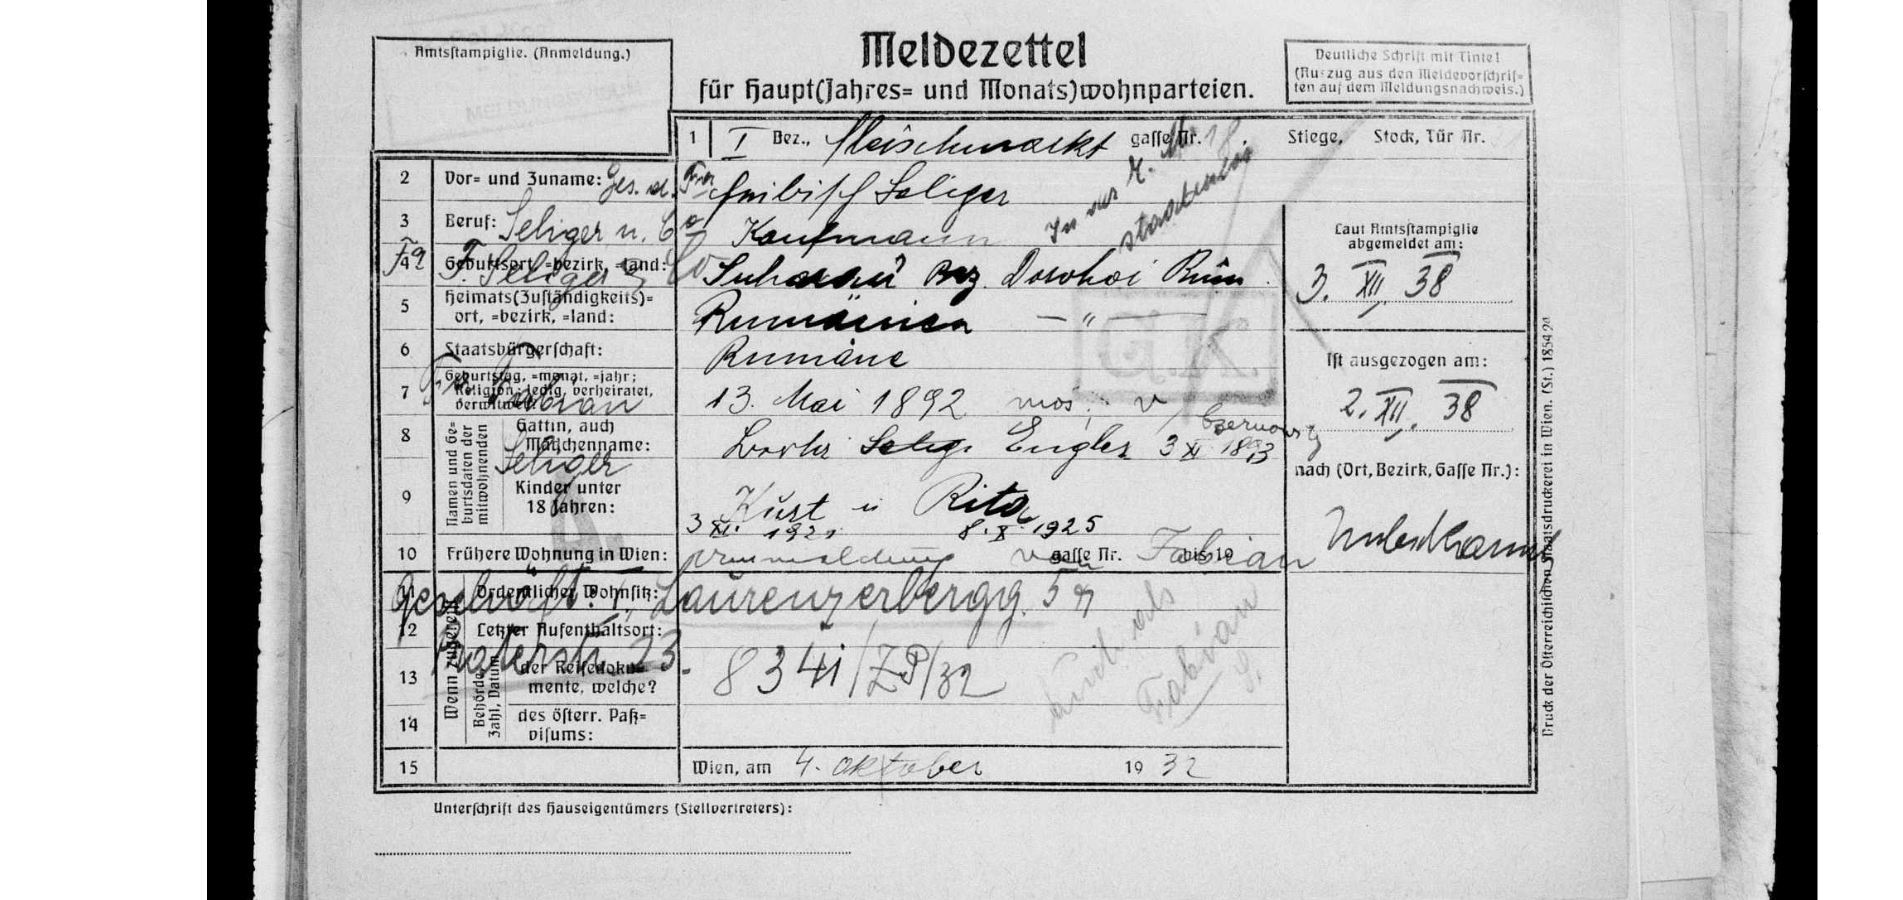 Amtsstampiglie. (Anmeldung.)
Meldezettel
für Haupt(Jahres= und Monats)wohnparteien.
Deutliche Schrift mit Tinte!
(Auszug aus den Meldevorschrif=
ten auf dem Meldungsnachweis.)
1 I Bez., Fleischmarkt gasse Nr. Stiege, Stock, Tür Nr.
2 Vor= und Zuname: Seliger
Ges. d. Fa
3 Beruf: Kaufmann
Seliger u. Co
4 Geburtsort, =bezirk, =land: Bez. Dorohoi Rum
Fa F. Seliger & Co
5 Heimats(Zuständigkeits)=
ort, =bezirk, =land: Rumänien — " —
6 Staatsbürgerschaft: Rumäne
staatenlos
G.K.
7 Geburtstag, =monat, =jahr;
Religion; ledig, verheiratet,
verwitwet: 13. Mai 1892 mos. v
Fabian
Seliger
Namen und Ge=
burtsdaten der
mitwohnenden
8 Gattin, auch
Mädchenname: Engler 3 XI 1893
9 Kinder unter
18 Jahren: Kurt u Rita
3 XI. 8. X. 1925
10 Frühere Wohnung in Wien: gasse Nr. bis 19
Fabian
Wenn zugereist
11 Ordentlicher Wohnsitz:
Geschäft: I., Laurenzerbergg. 5
12 Letzter Aufenthaltsort:
Praterstr. 23
Behörde, Zahl, Datum
13 der Reisedoku=
mente, welche? 8341/ZP/32
auch als
Fabian S.
14 des österr. Paß=
visums:
15 Wien, am 4. Oktober 1932
Laut Amtsstampiglie
abgemeldet am:
3. XII 38
Ist ausgezogen am:
2. XII. 38
nach (Ort, Bezirk, Gasse Nr.):
Unbekannt
Unterschrift des Hauseigentümers (Stellvertreters):
Druck der Österreichischen Staatsdruckerei in Wien. (St.) 1854 29